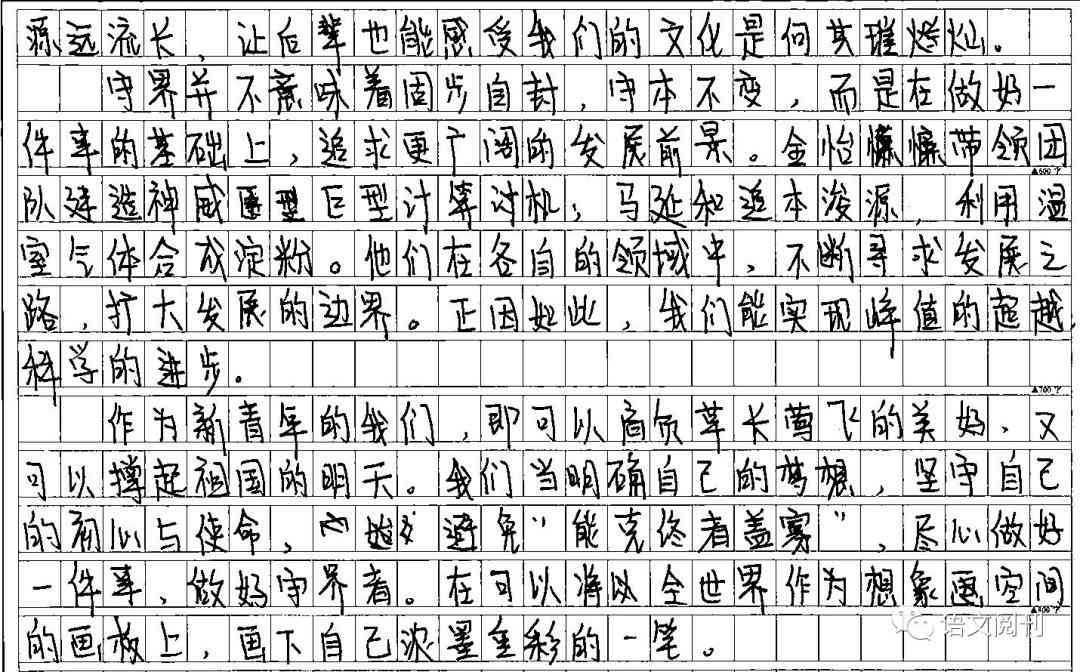 源远流长，让后辈也能感受我们的文化是何其璀灿。
守界并不意味着固步自封，守本不变，而是在做好一
件事的基础上，追求更广阔的发展前景。金怡濂带领团
▲600字
队建造神威巨型计算机；马延和追本浚源，利用温
室气体合成淀粉。他们在各自的领域中，不断寻求发展之
路，扩大发展的边界。正因如此，我们能实现峰值的超越，
科学的进步。
▲700字
作为新青年的我们，即可以肩负草长莺飞的美好，又
可以撑起祖国的明天。我们当明确自己的梦想，坚守自己
的初心与使命，避免“能克终者盖寡”，尽心做好
一件事，做好守界者。在可以将以全世界作为想象画空间
▲800字
的画板上，画下自己浓墨重彩的一笔。
语文阅刊